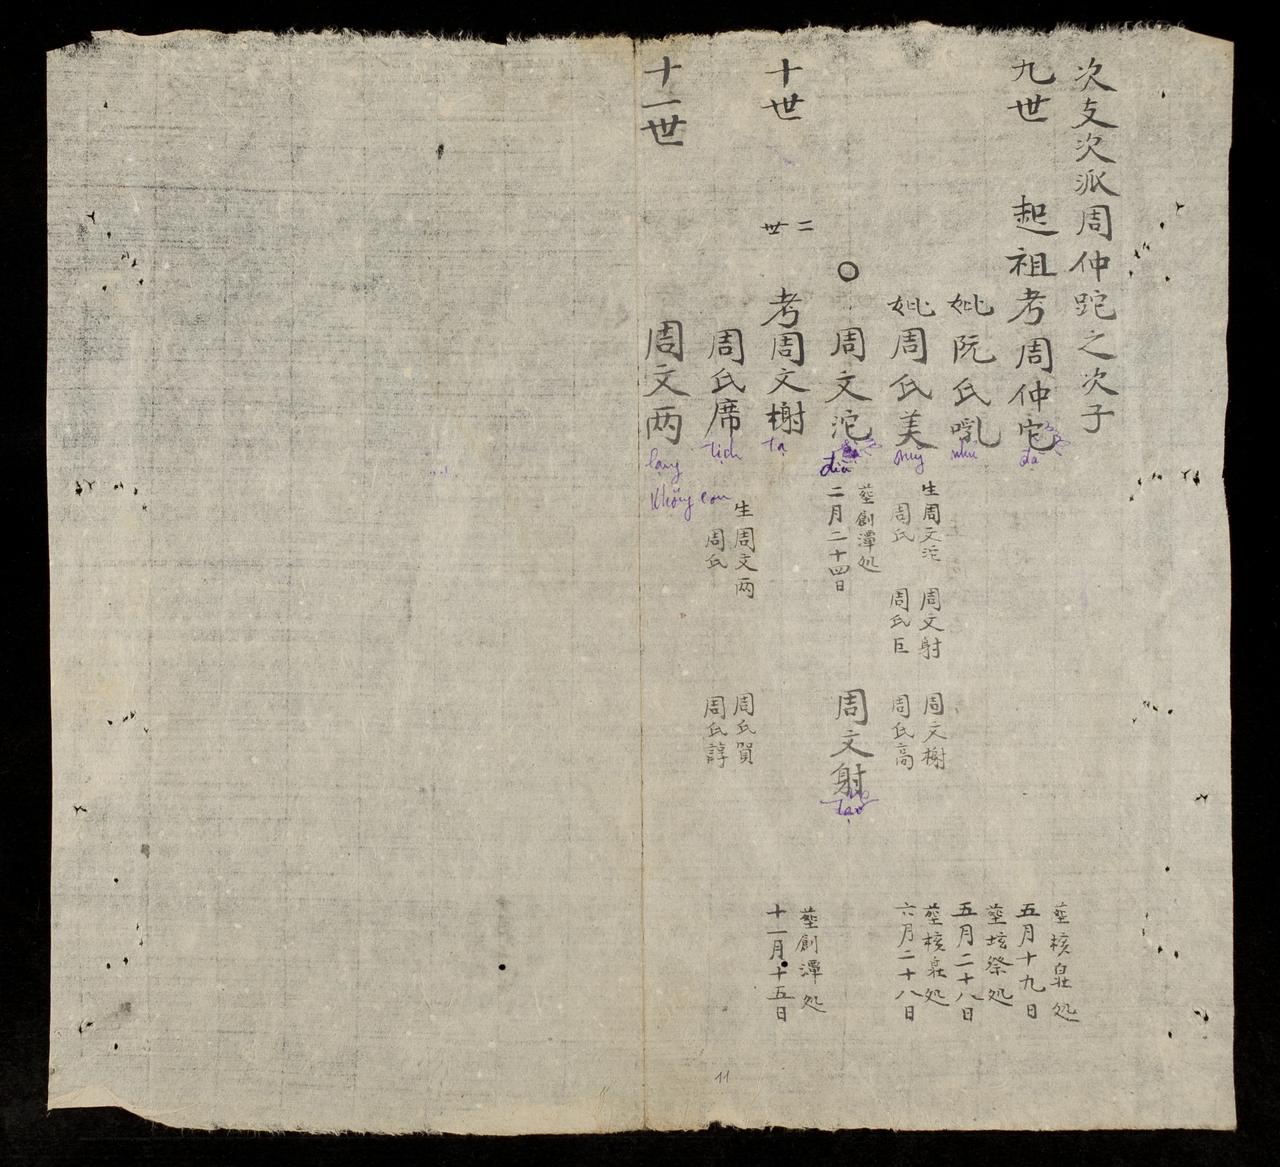 次支次派周仲跎之次子
九世
起祖考周仲佗
đà
塟核皀社処
五月十九日
妣阮氏㗕
nhũ
塟垓祭処
五月二十八日
妣周氏美
mỹ
生周文沱 周文射 周文榭
周氏 周氏巨 周氏高
塟核皀社処
六月二十八日
周文沱
塟創潭処
二月二十四日
周文射
tạ
十世
二世
考周文榭
tạ
塟創潭処
十一月十五日
周氏席
tịch
生周文両 周氏賀
周氏 周氏諄
十一世
周文両
lạng
không con
11